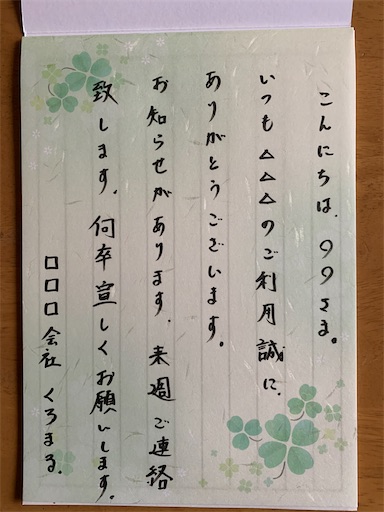 こんにちは、〇〇さま。
いつも△△△のご利用誠に、
ありがとうございます。
お知らせがあります、来週ご連絡
致します、何卒宣しくお願いします。
□□□会社 くろまる、